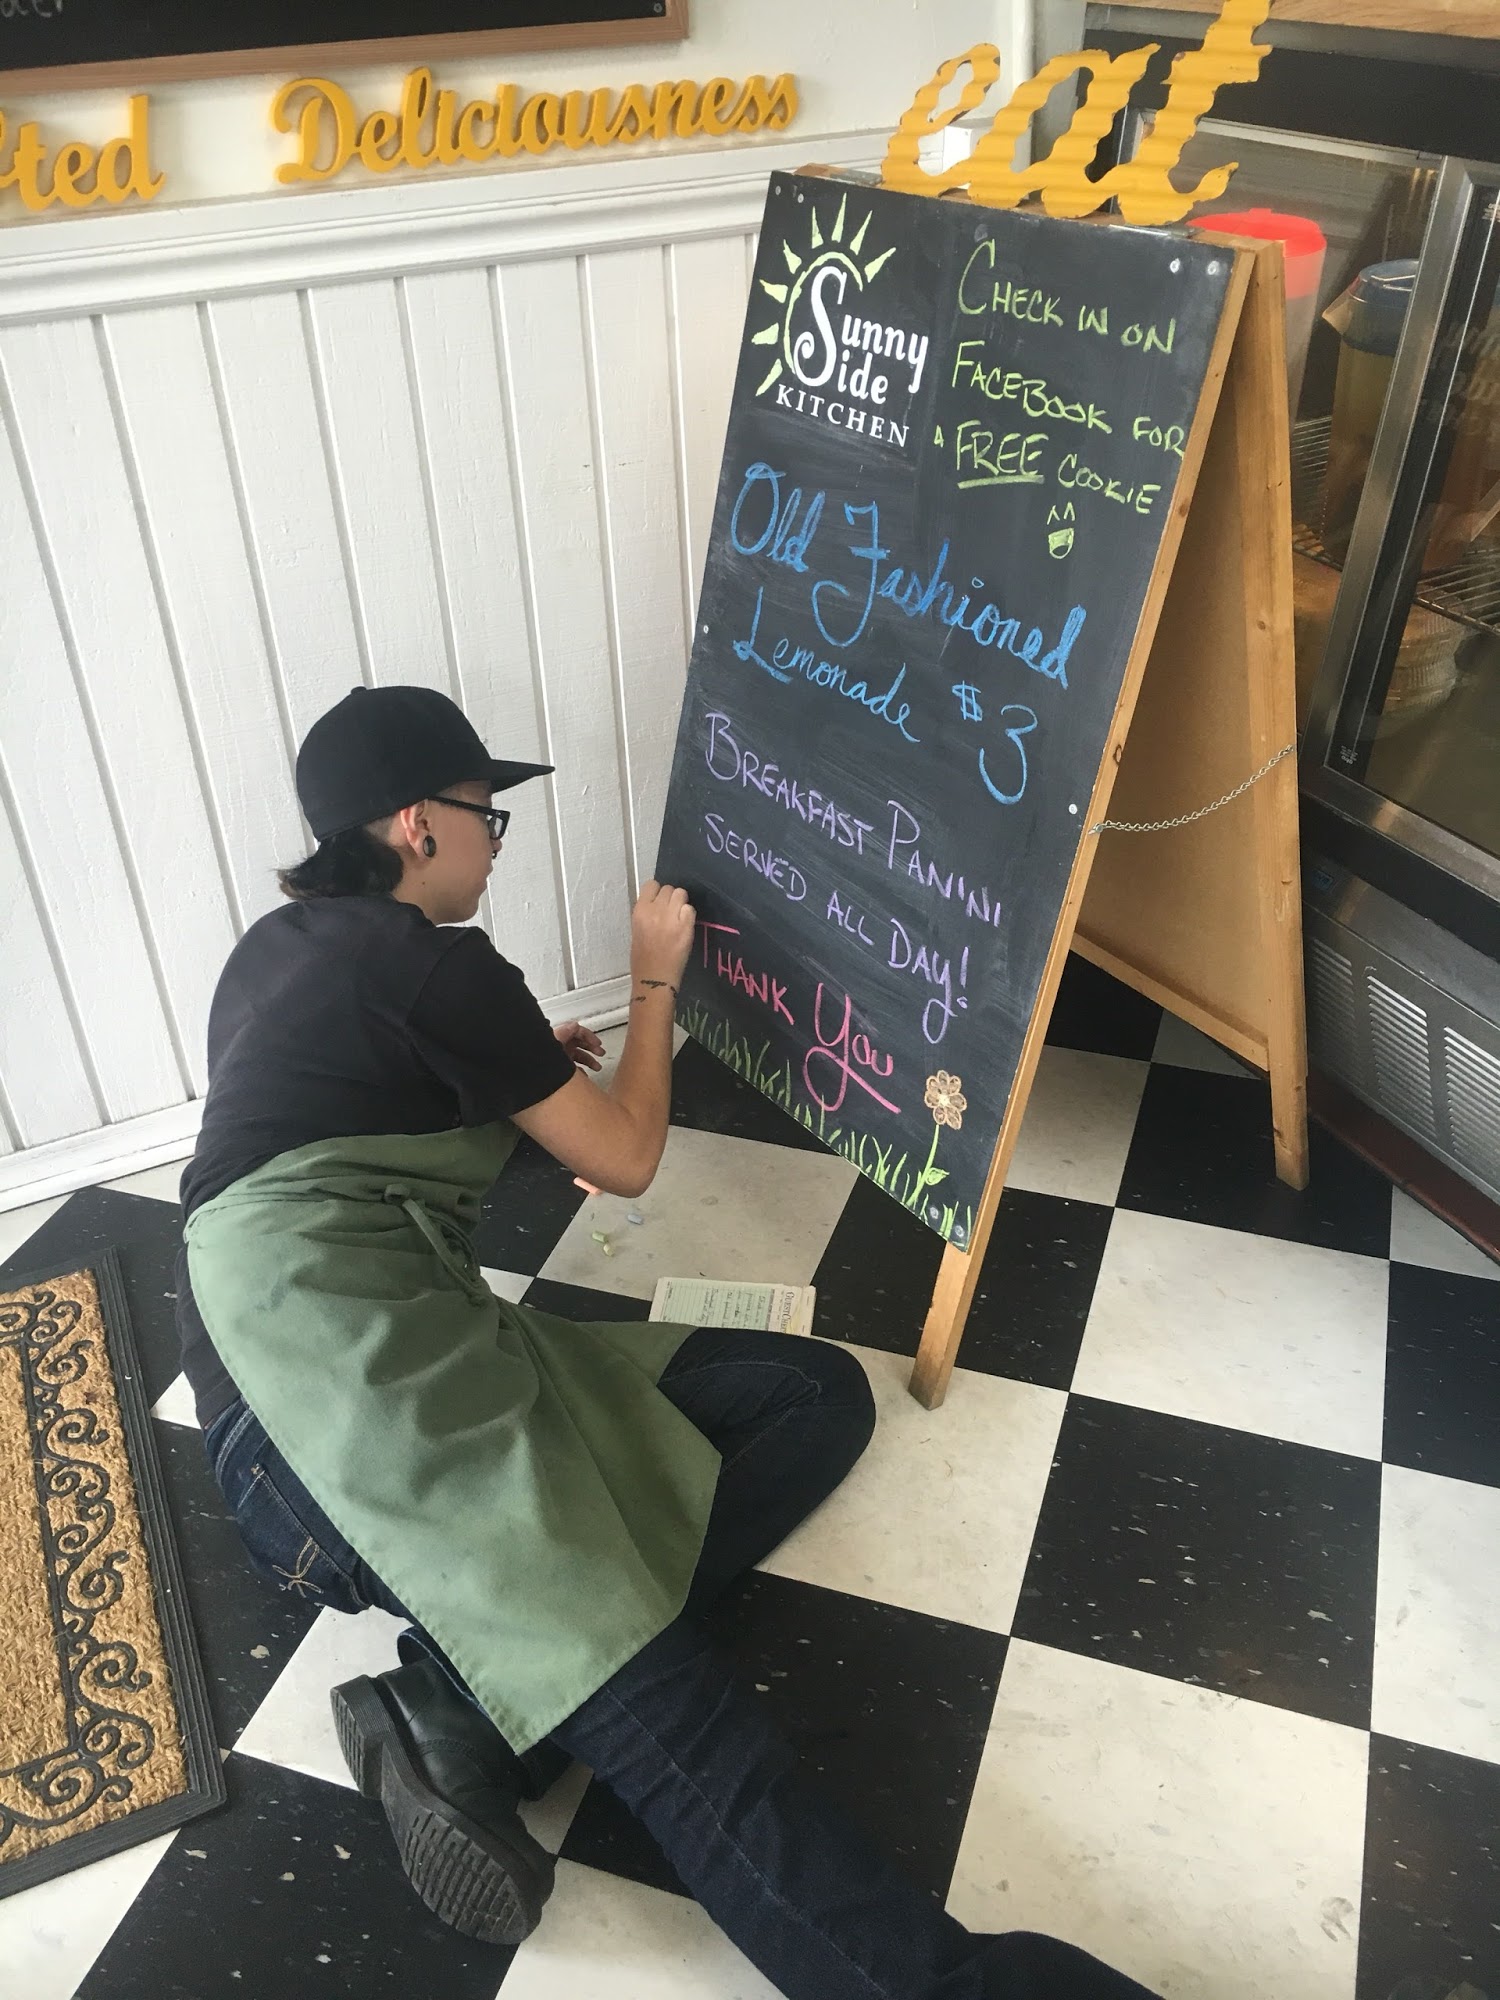 Deliciousness
eat
Sunny
Side
KITCHEN
CHECK IN ON
FACEBOOK FOR
A FREE COOKIE
Old Fashioned
Lemonade $3
BREAKFAST PANINI
SERVED ALL DAY!
THANK YOU